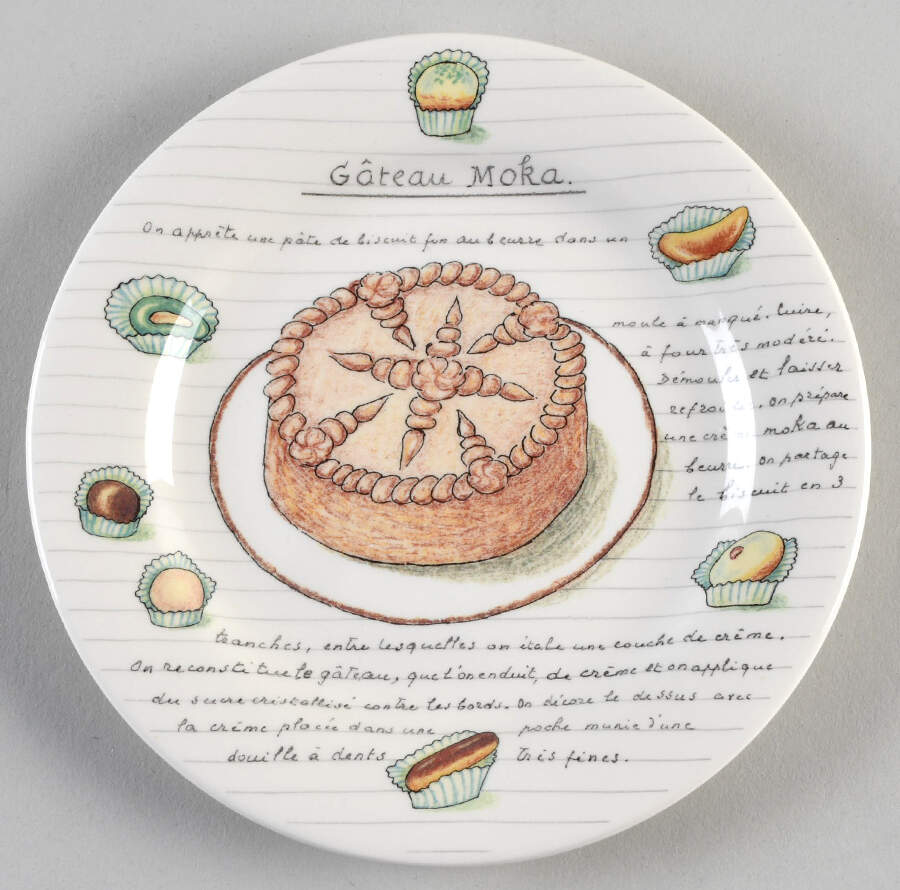 Gâteau Moka.
On apprête une pâte de biscuit fin au beurre dans un
moule à manqué. Cuire,
à four très modéré.
Démouler et laisser
refroidir. On prépare
une crème moka au
beurre. On partage
le biscuit en 3
tranches, entre lesquelles on étale une couche de crème.
On reconstitue le gâteau, que l'on enduit, de crème et on applique
du sucre cristallisé contre les bords. On décore le dessus avec
la crème placée dans une poche munie d'une
douille à dents très fines.